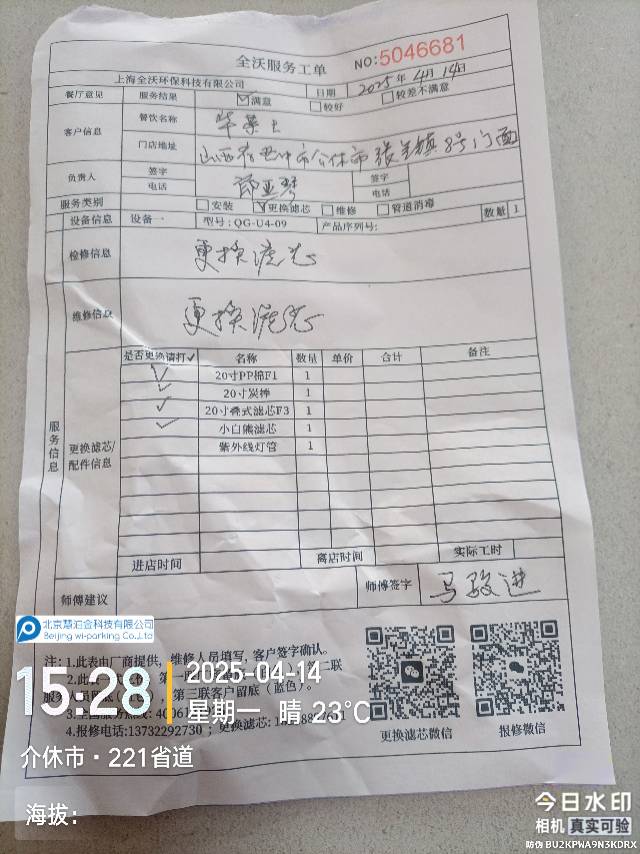 全沃服务工单
NO:5046681
上海全沃环保科技有限公司 日期 2025年4月14日
餐厅意见 服务结果 ☑满意 □较好 □较差不满意
客户信息 餐饮名称 华莱士
门店地址 山西省晋中市介休市张兰镇8号门面
负责人 签字 签字
电话 电话
服务类别 □安装 ☑更换滤芯 □维修 □管道消毒
设备信息 设备一 型号:QG-U4-09 产品序列号: 数量 1
检修信息 更换滤芯
维修信息 更换滤芯
服务信息
更换滤芯/配件信息
是否更换请打✓ 名称 数量 单价 合计 备注
✓ 20寸PP棉F1 1
✓ 20寸炭棒 1
✓ 20寸叠式滤芯F3 1
✓ 小白熊滤芯 1
紫外线灯管 1
进店时间 离店时间 实际工时
师傅建议 师傅签字 马骏进
北京慧泊金科技有限公司
Beijing wi-parking Co.,Ltd
注:1.此表由厂商提供，维修人员填写，客户签字确认。
2.此 第 二联
服务人员 第三联客户留底（蓝色）。
3.全国服务热线:4006
4.报修电话:13732292730 ；更换滤芯:
更换滤芯微信 报修微信
15:28
2025-04-14
星期一 晴 23℃
介休市·221省道
海拔:
今日水印
相机 真实可验
防伪 BU2KPWA9N3KDRX